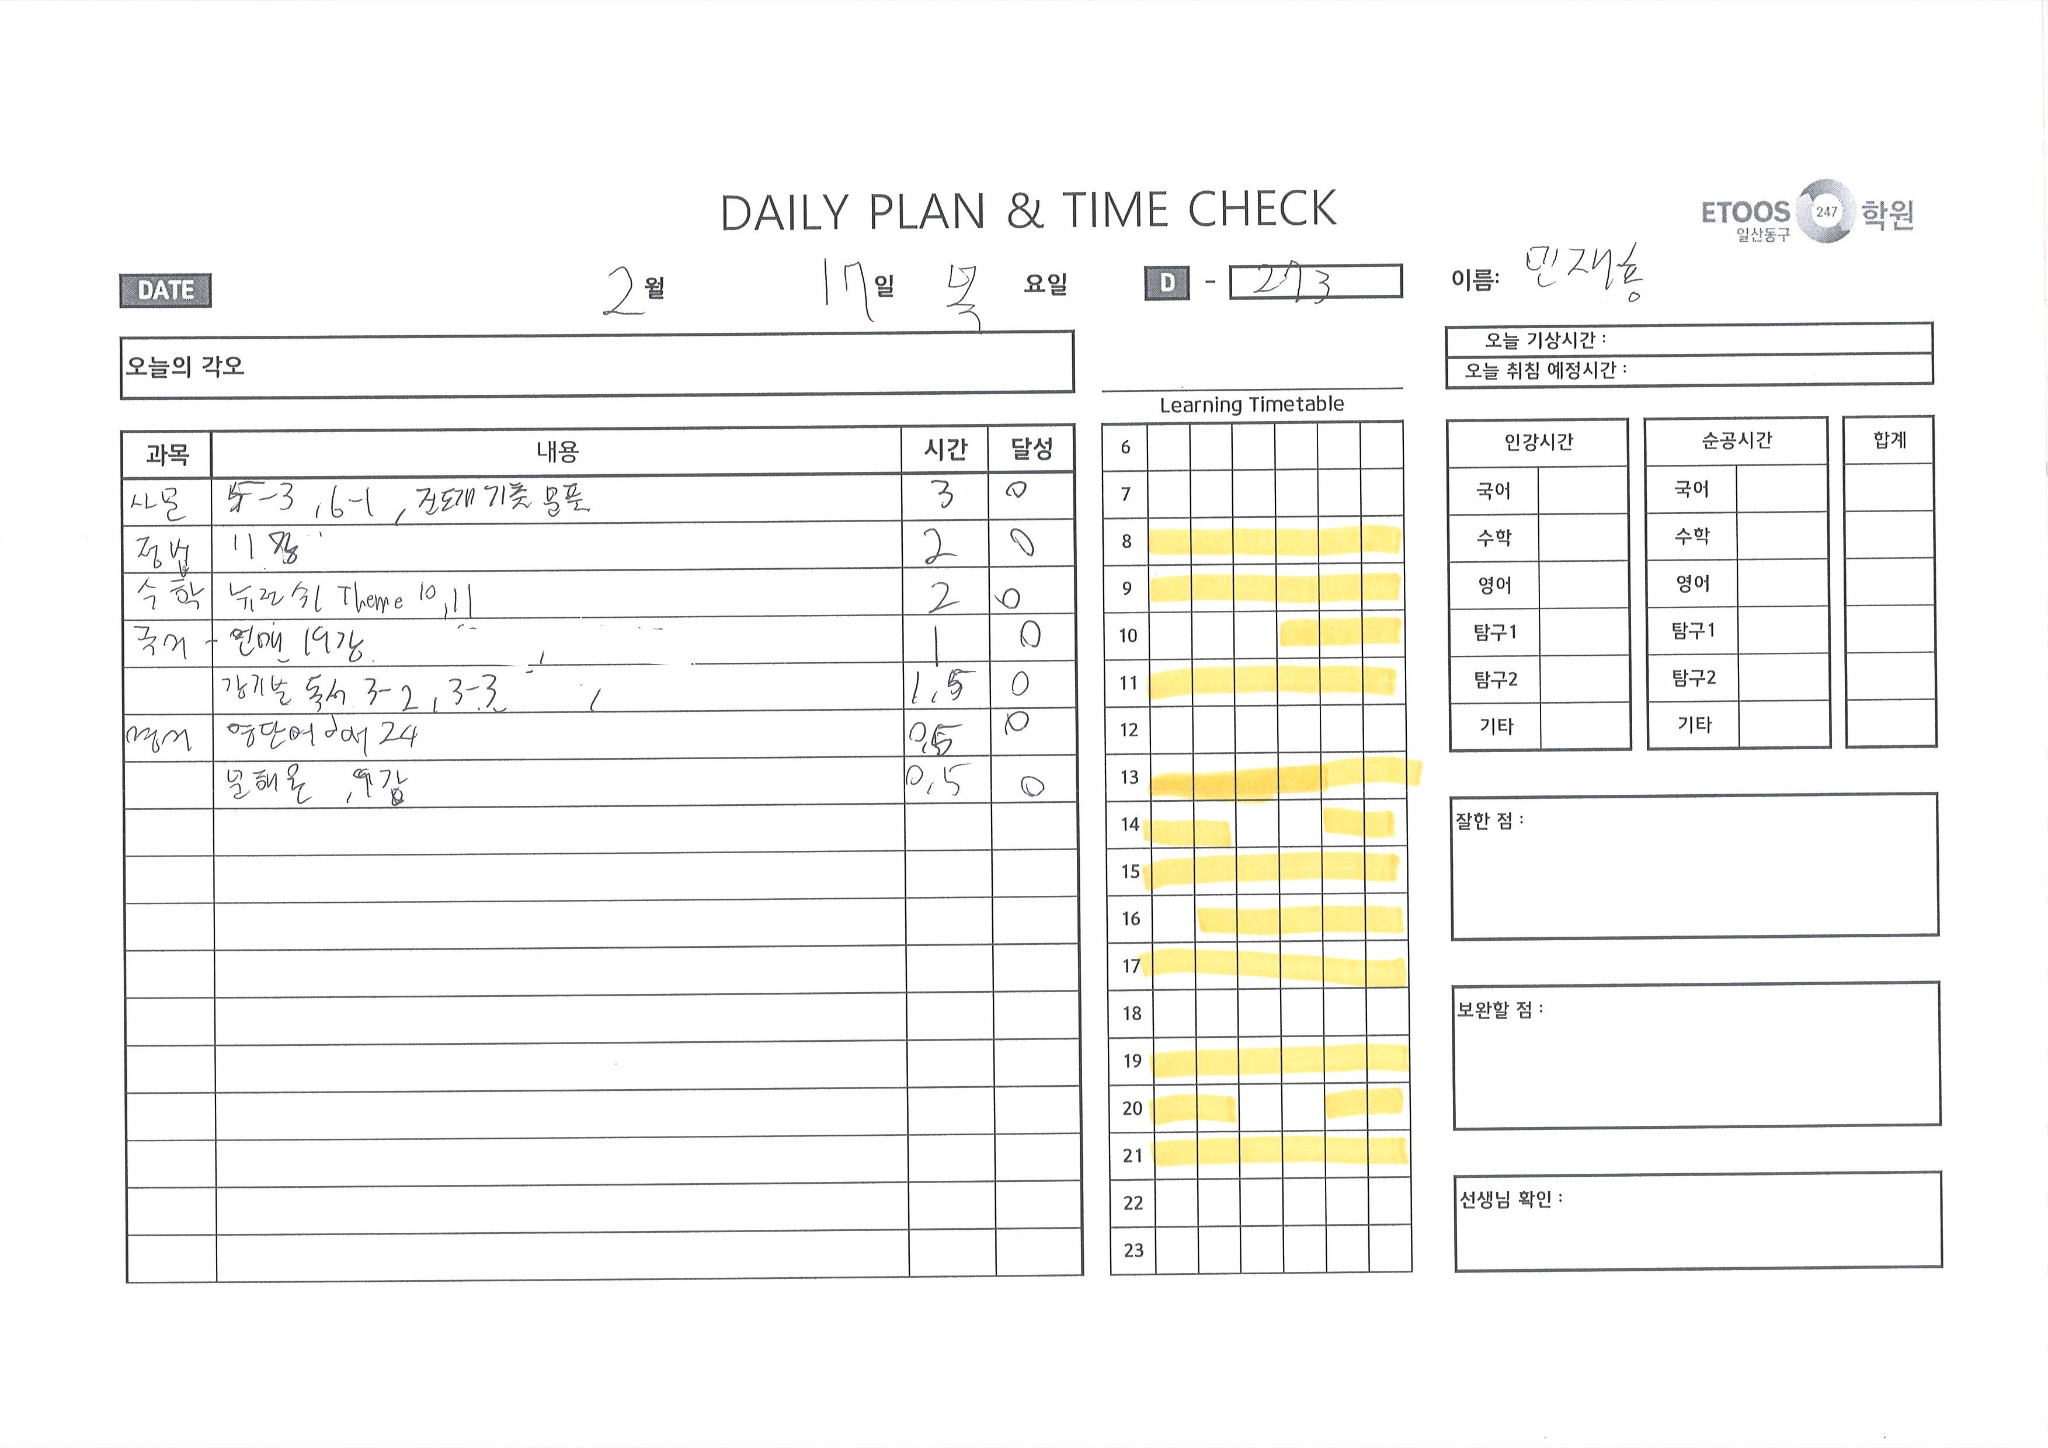 DAILY PLAN & TIME CHECK
ETOOS 247 학원
일산동구
DATE 2월 17일 목요일 D - 273 이름: 민재홍
오늘의 각오
오늘 기상시간 :
오늘 취침 예정시간 :
과목 내용 시간 달성
사문 5-3, 6-1, 진도개 기출 문풀 3 0
정법 11강 2 0
수학 뉴런 수1 Theme 10, 11 2 0
국어 - 언매 19강 1 0
강기본 독서 3-2, 3-3 1.5 0
영어 영단어 day 24 0.5 0
문해온, 9강 0.5 0
Learning Timetable
6
7
8
9
10
11
12
13
14
15
16
17
18
19
20
21
22
23
인강시간 순공시간 합계
국어 국어
수학 수학
영어 영어
탐구1 탐구1
탐구2 탐구2
기타 기타
잘한 점 :
보완할 점 :
선생님 확인 :